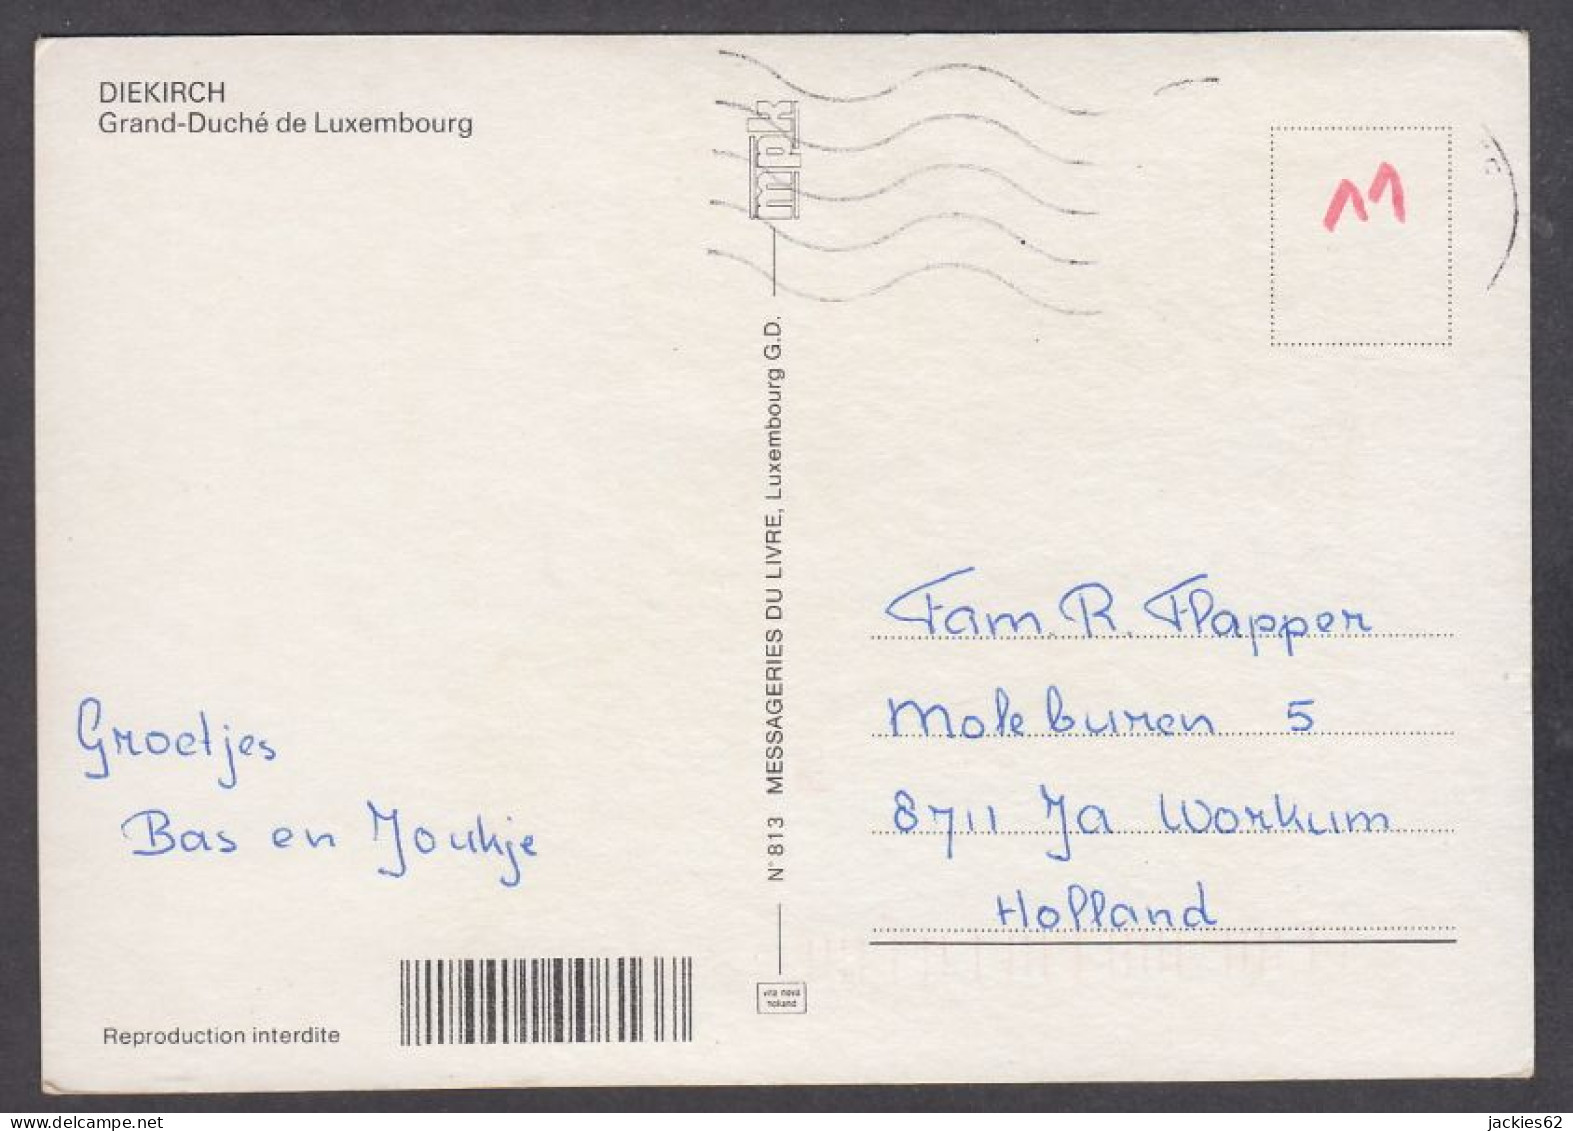 DIEKIRCH
Grand-Duché de Luxembourg
mpk
11
N° 813 MESSAGERIES DU LIVRE, Luxembourg G.D.
Fam. R. Flapper
Moleburen 5
8711 Ja Workum
Holland
Groetjes
Bas en Joukje
Reproduction interdite
vita nova
holland
www.delcampe.net
jackies62